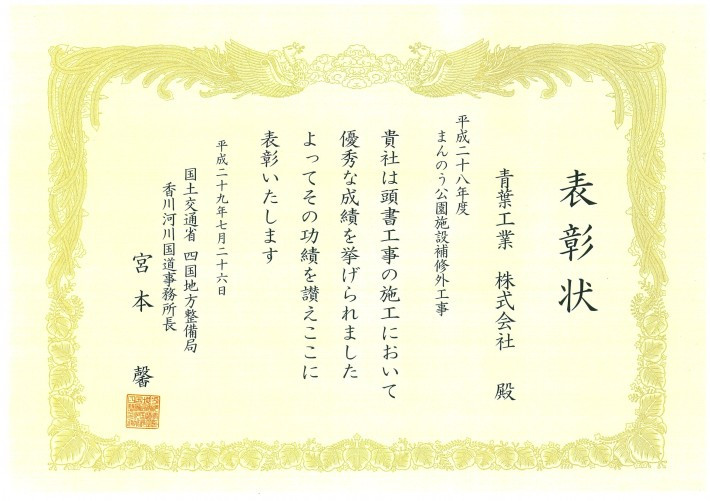 表彰状
青葉工業 株式会社 殿
平成二十八年度
まんのう公園施設補修外工事
貴社は頭書工事の施工において
優秀な成績を挙げられました
よってその功績を讃えここに
表彰いたします
平成二十九年七月二十六日
国土交通省 四国地方整備局
香川河川国道事務所長
宮本 馨